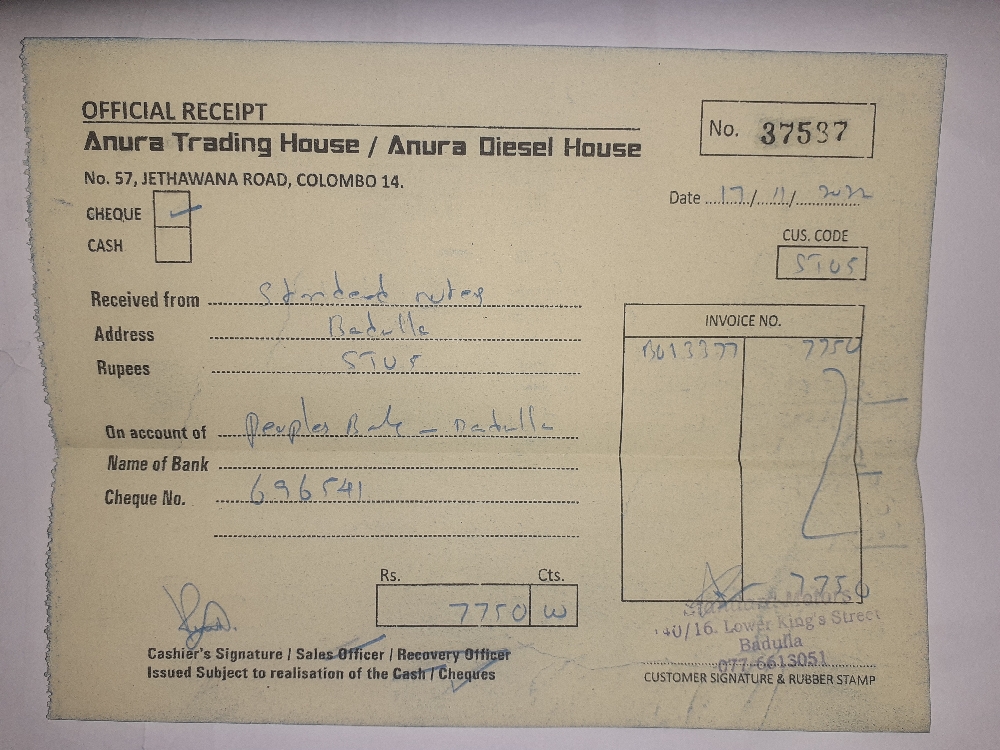 OFFICIAL RECEIPT
Anura Trading House / Anura Diesel House
No. 37537
No. 57, JETHAWANA ROAD, COLOMBO 14.
Date 17/11/2022
CHEQUE
CASH
CUS. CODE
ST05
Received from
Address Badulla
Rupees ST05
INVOICE NO.
B013377 7750
On account of Peoples Bank - Badulla
Name of Bank
Cheque No. 696541
Rs. Cts.
7750
7750
Standard Motors
140/16. Lower King's Street
Badulla
077-6613051
Cashier's Signature / Sales Officer / Recovery Officer
Issued Subject to realisation of the Cash / Cheques
CUSTOMER SIGNATURE & RUBBER STAMP